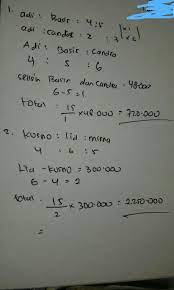 1. adi : Basir = 4 : 5
adi : candra = 2 : 3 | x1 x2
Adi : Basir : Candra
4 : 5 : 6
selisih Basir dan Candra = 48.000
6 - 5 = 1
total : 15/1 x 48.000 = 720.000
2. kusno : Lia : mirna
4 : 6 : 5
Lia - kusno = 300.000
6 - 4 = 2
total : 15/2 x 300.000 = 2.250.000
=